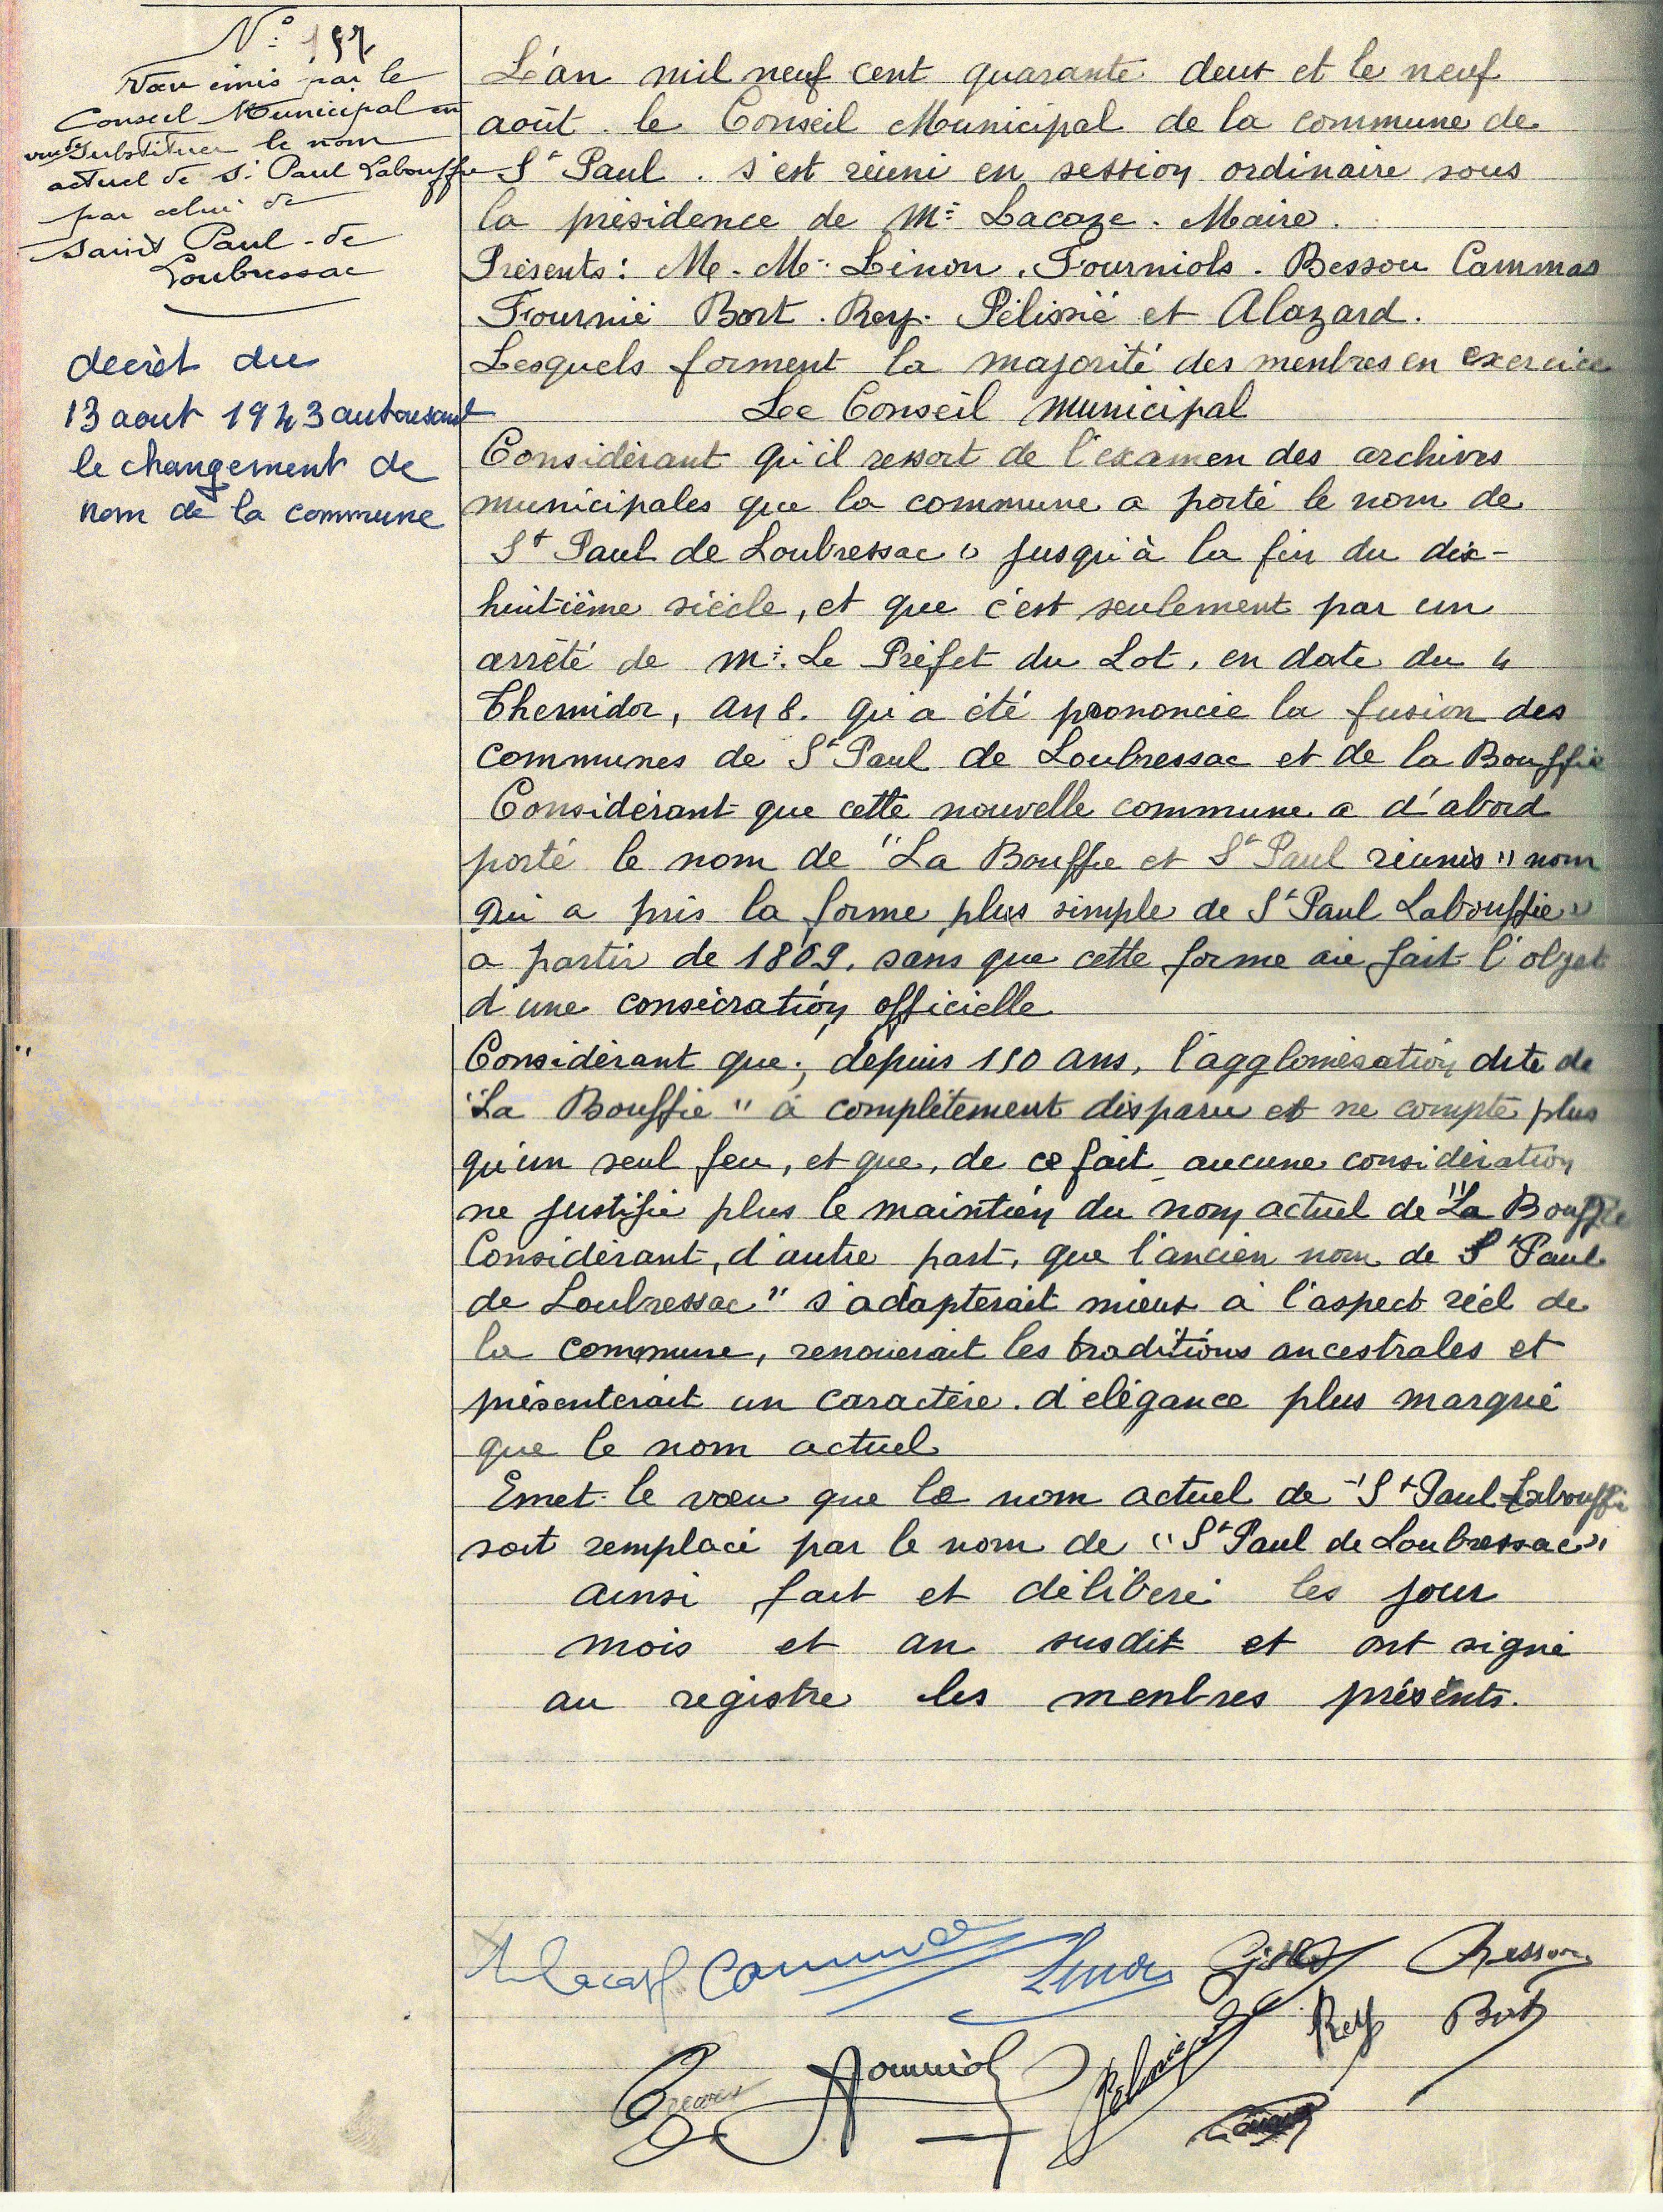 N°: 197
Vœu émis par le
Conseil Municipal en
vue de substituer le nom
actuel de St Paul Labouffie
par celui de
Saint Paul-de
Loubressac
decrèt du
13 aout 1943 autorisant
le changement de
nom de la commune
L'an mil neuf cent quarante deux et le neuf
août. le Conseil Municipal de la commune de
St Paul. s'est réuni en session ordinaire sous
la présidence de Mr Lacaze. Maire.
Présents: M.M. Linon, Fourniols. Bessou Cammas
Fournié Bort. Rey. Pélissié et Alazard.
Lesquels forment la majorité des menbres en exercice
Le Conseil Municipal
Considérant qu'il ressort de l'examen des archives
municipales que la commune a porté le nom de
St Paul de Loubressac" jusqu'à la fin du dix-
huitième siècle, et que c'est seulement par un
arrêté de Mr. Le Préfet du Lot, en date du 4
Themidor, an 8. qu'a été prononcée la fusion des
communes de St Paul de Loubressac et de la Bouffie
Considérant que cette nouvelle commune a d'abord
porté le nom de "La Bouffie et St Paul réunis" nom
qui a pris la forme plus simple de St Paul Labouffie"
a partir de 1809, sans que cette forme aie fait l'objet
d'une consécration officielle
Considérant que, depuis 150 ans, l'agglomération dite de
"La Bouffie" à complètement disparu et ne compte plus
qu'un seul feu, et que, de ce fait aucune considération
ne justifie plus le maintien du nom actuel de "La Bouffie
Considérant, d'autre part, que l'ancien nom de St Paul
de Loubressac" s'adapterait mieux à l'aspect réel de
la commune, renouerait les traditions ancestrales et
présenterait un caractère d'elégance plus marqué
que le nom actuel
Emet le vœu que le nom actuel de "St Paul Labouffie
soit remplacé par le nom de "St Paul de Loubressac"
ainsi fait et délibéré les jour
mois et an susdit et ont signé
au registre les menbres présents.
Cammas
Linon
Bessou
Rey
Bort
Fourniol